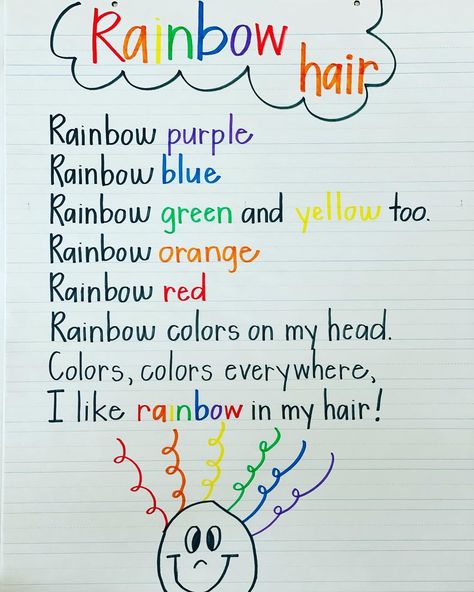 Rainbow
hair
Rainbow purple
Rainbow blue
Rainbow green and yellow too.
Rainbow orange
Rainbow red
Rainbow colors on my head.
Colors, colors everywhere,
I like rainbow in my hair!